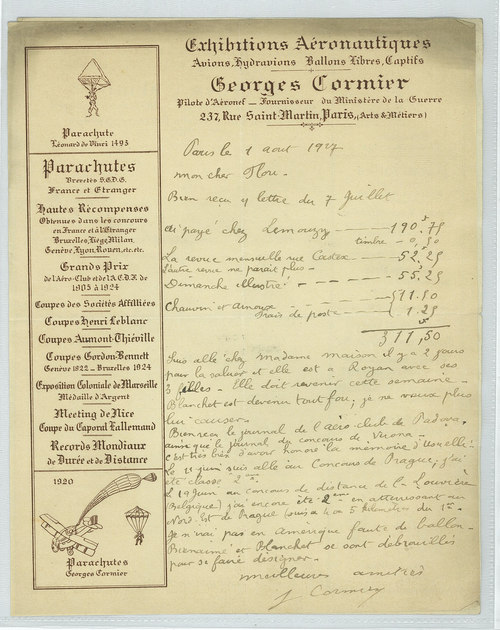 Exhibitions Aéronautiques
Avions, Hydravions Ballons Libres, Captifs
Georges Cormier
Pilote d'Aéronef — Fournisseur du Ministère de la Guerre
237, Rue Saint-Martin, Paris, (Arts & Métiers)
Parachute
Léonard de Vinci 1495
Parachutes
Brevetés S.G.D.G.
France et Etranger
Hautes Récompenses
Obtenues dans les concours
en France et à l'Etranger
Bruxelles, Liège, Milan
Genève, Lyon, Rouen, etc. etc.
Grands Prix
de l'Aéro-Club et de l'A.C.D.F. de
1905 à 1924
Coupes des Sociétés Affiliées
Coupes Henri Leblanc
Coupes Aumont-Thiéville
Coupes Gordon-Bennett
Genève 1922 — Bruxelles 1924
Exposition Coloniale de Marseille
Médaille d'Argent
Meeting de Nice
Coupe du Caporal Lallemand
Records Mondiaux
de Durée et de Distance
1920
Parachutes
Georges Cormier
Paris le 1 aout 1927
mon cher
Bien reçu ta lettre du 7 Juillet
ai payé chez 190.75
timbre — 0,50
La revue mensuelle rue 52.25
L'autre revue ne parait plus —
Dimanche illustré — 55.25
Chauvin et Arnoux — 11.50
frais de poste — 1.25
311,50
Suis allé chez madame maison il y a 2 jours
pour la saluer et elle est a Royan avec ses
3 filles — Elle doit revenir cette semaine —
Blanchet est devenu tout fou; je ne veux plus
lui causer.
Bien reçu le journal de l'aéro club de Padova.
ainsi que le journal du concours de Verona —
C'est très bien d'avoir honoré la mémoire d'Usuelli
Le 11 juin suis allé au Concours de Prague; j'ai
été classé 2me.
Le 19 Juin au concours de distance de La Louvière
(Belgique) j'ai encore été 2me en atterrissant au
Nord Est de Prague 4 ou 5 kilomètres du 1er.
Je n'irai pas en Amérique faute de ballon —
Bienaimé et Blanchet se sont débrouillés
pour se faire désigner.
meilleures amitiés
Cormier